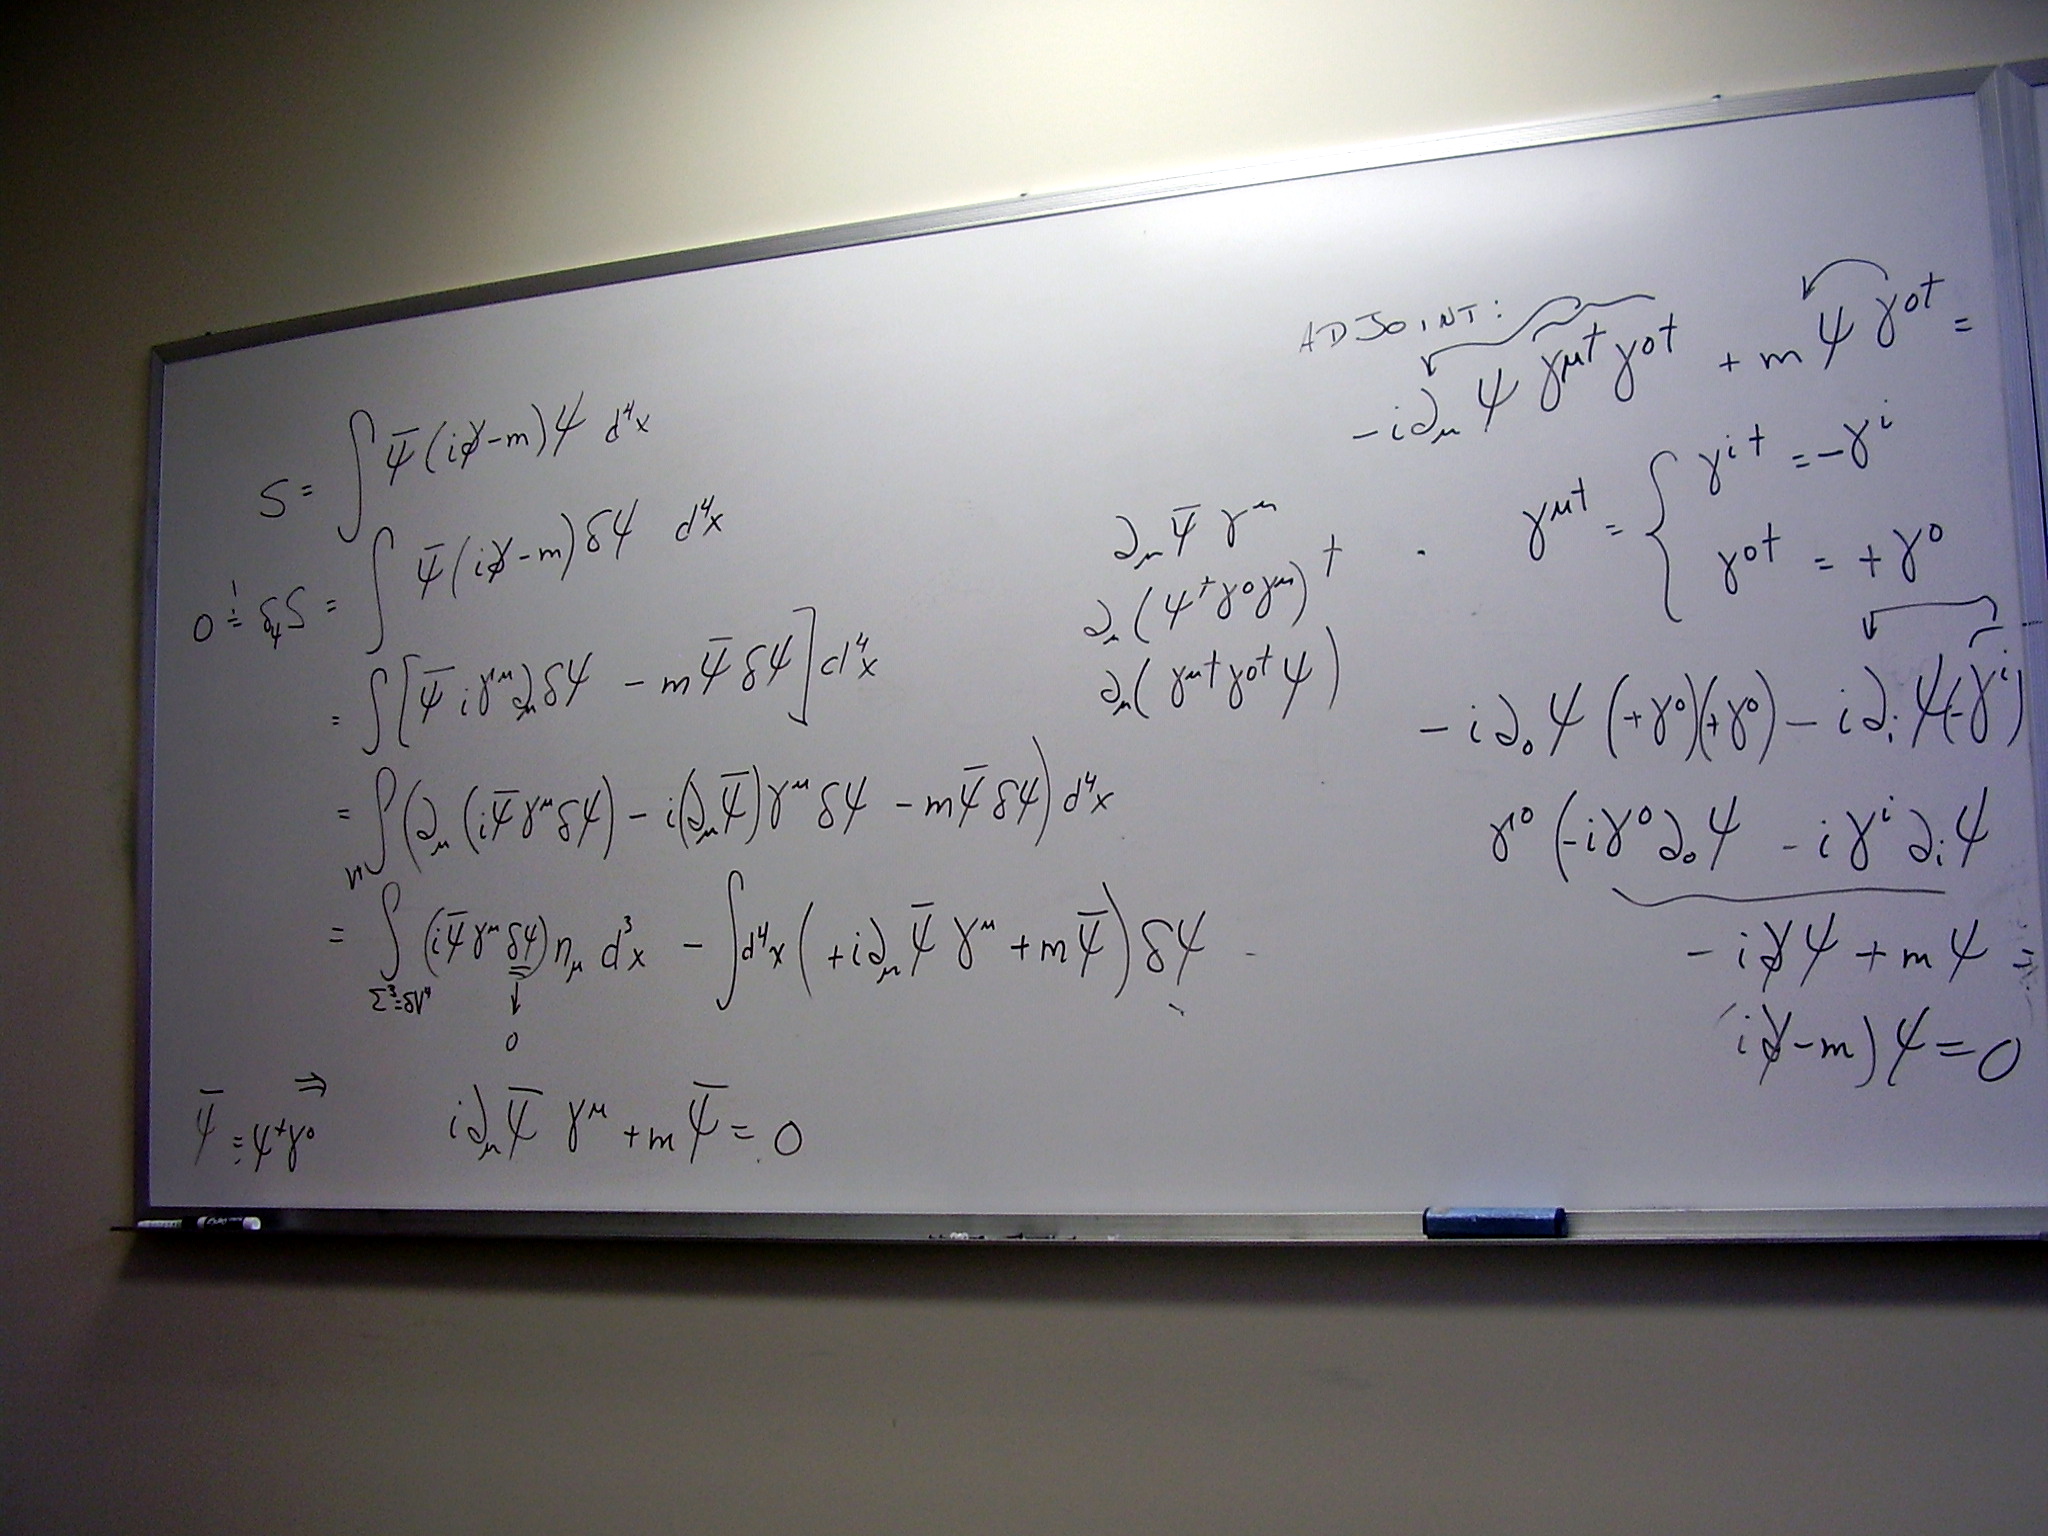 S = ∫ ψ̄ (i∂̸ - m) ψ d⁴x
0 ≐ δ_ψ S = ∫ ψ̄ (i∂̸ - m) δψ d⁴x
= ∫ [ ψ̄ i γ^μ ∂_μ δψ - m ψ̄ δψ ] d⁴x
= ∫_{V⁴} ( ∂_μ (i ψ̄ γ^μ δψ) - i(∂_μ ψ̄) γ^μ δψ - m ψ̄ δψ ) d⁴x
= ∫_{Σ³=δV⁴} (i ψ̄ γ^μ δψ) n_μ d³x - ∫ d⁴x ( +i ∂_μ ψ̄ γ^μ + m ψ̄ ) δψ
↓
0
⇒ i ∂_μ ψ̄ γ^μ + m ψ̄ = 0
ψ̄ ≡ ψ^† γ^0
∂_μ ψ̄ γ^μ
∂_μ ( ψ^† γ^0 γ^μ ) †
∂_μ ( γ^{μ†} γ^{0†} ψ )
ADJOINT:
-i ∂_μ ψ γ^{μ†} γ^{0†} + m ψ γ^{0†} =
γ^{μ†} = { γ^{i†} = -γ^i
γ^{0†} = +γ^0
-i ∂_0 ψ (+γ^0)(+γ^0) - i ∂_i ψ (-γ^i)
γ^0 (-i γ^0 ∂_0 ψ - i γ^i ∂_i ψ
-i ∂̸ ψ + m ψ =
i∂̸ - m) ψ = 0